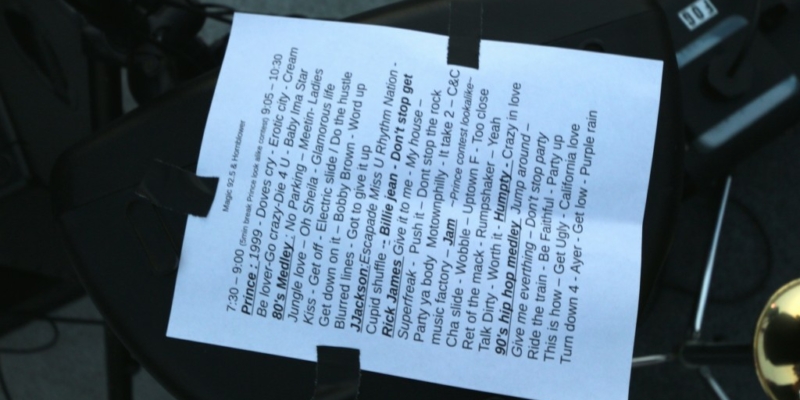 Magic 92.5 & Hornblower
7:30 – 9:00 (5min break Prince look alike contest) 9:05 – 10:30
Prince - 1999 - Doves cry - Erotic city - Cream
Be lover-Go crazy-Die 4 U - Baby Ima Star
80's Medley: No Parking – Meetin- Ladies
Jungle love – Oh Sheila - Glamorous life
Kiss - Get off - Electric slide / Do the hustle
Get down on it – Bobby Brown - Word up
Blurred lines – Got to give it up
JJackson:Escapade Miss U Rhythm Nation -
Cupid shuffle -- Billie jean - Don't stop get
Rick James Give it to me - My house –
Superfreak - Push it – Dont stop the rock
Party ya body Motownphilly - It take 2 – C&C
music factory – Jam ~Prince contest lookalike~
Cha slide - Wobble – Uptown F - Too close
Ret of the mack - Rumpshaker – Yeah
Talk Dirty - Worth it - Humpty – Crazy in love
90's hip hop medley, Jump around –
Give me everything – Don't stop party
Ride the train - Be Faithful - Party up
This is how – Get Ugly - California love
Turn down 4 - Ayer - Get low - Purple rain
901